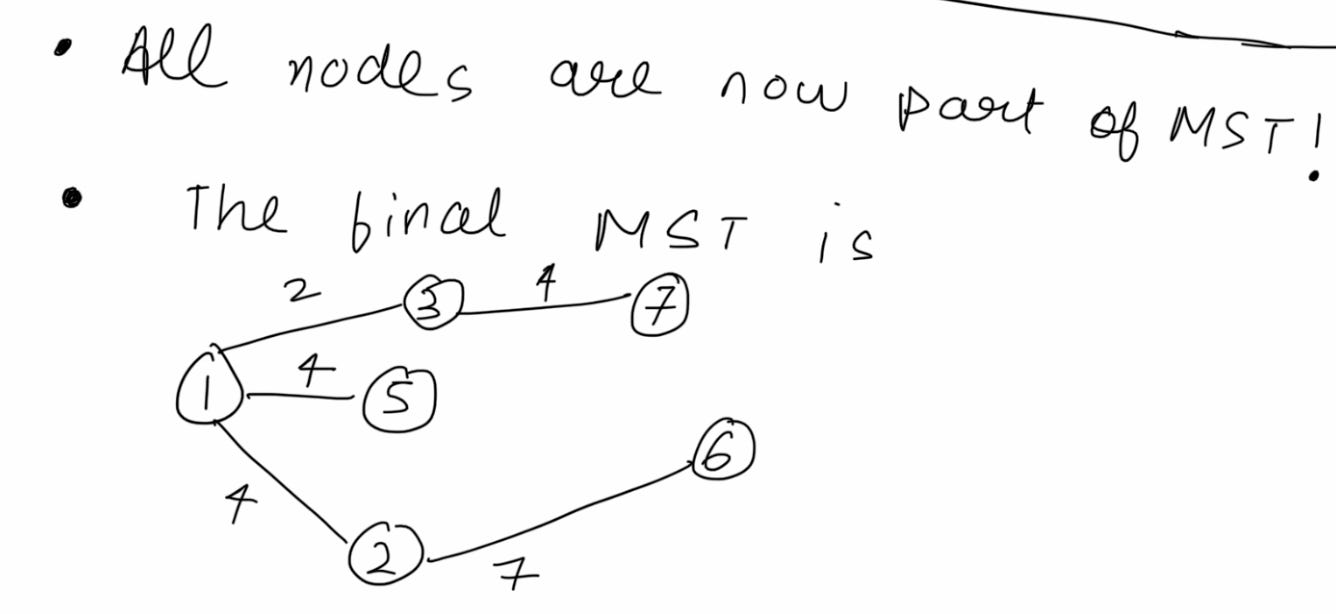 • All nodes are now part of MST!
• The final MST is
2 3 4 7
1 4 5
6
4
2 7